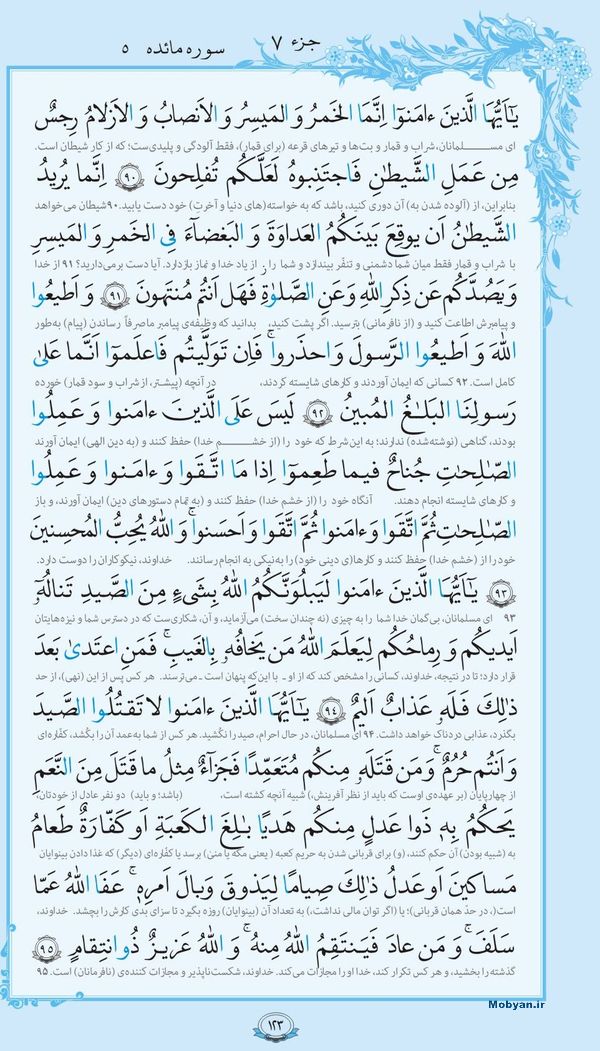 جزء ۷
سوره مائده ۵
يَٰٓأَيُّهَا الَّذينَ ءامَنوٓا إِنَّمَا الخَمرُ وَ المَيسِرُ وَ الأَنصابُ وَ الأَزلامُ رِجسٌ
ای مسلمانان، شراب و قمار و بت‌ها و تیرهای قرعه (برای قمار)، فقط آلودگی و پلیدی‌ست؛ که از کار شیطان است.
مِن عَمَلِ الشَّيطٰنِ فَاجتَنِبوهُ لَعَلَّكُم تُفلِحونَ ۹۰ إِنَّما يُريدُ
بنابراین، از (آلوده شدن به) آن دوری کنید، باشد که به خواسته(های دنیا و آخرتِ) خود دست یابید. ۹۰ شیطان می‌خواهد
الشَّيطٰنُ أَن يوقِعَ بَينَكُمُ العَداوَةَ وَ البَغضاءَ فِى الخَمرِ وَ المَيسِرِ
با شراب و قمار فقط میان شما دشمنی و تنفّر بیندازد و شما را از یاد خدا و نماز بازدارد. آیا دست برمی‌دارید؟ ۹۱ از خدا
وَ يَصُدَّكُم عَن ذِكرِ اللهِ وَ عَنِ الصَّلوٰةِ فَهَل أَنتُم مُنتَهونَ ۹۱ وَ أَطيعُوا
و پیامبرش اطاعت کنید و (از نافرمانی) بترسید. اگر پشت کنید، بدانید که وظیفه‌ی پیامبر ما صرفاً رساندن (پیام) به‌طور
اللهَ وَ أَطيعُوا الرَّسولَ وَ احذَروا ۚ فَإِن تَوَلَّيتُم فَاعلَموٓا أَنَّما عَلىٰ
کامل است. ۹۲ کسانی که ایمان آوردند و کارهای شایسته کردند، در آنچه (پیشتر، از شراب و سود قمار) خورده
رَسولِنَا البَلٰغُ المُبينُ ۹۲ لَيسَ عَلَى الَّذينَ ءامَنوا وَ عَمِلُوا
بودند، گناهی (نوشته‌شده) ندارند؛ به این شرط که خود را (از خشم خدا) حفظ کنند و (به دین الهی) ایمان آورند
الصّٰلِحٰتِ جُناحٌ فيما طَعِموٓا إِذا مَا اتَّقَوا وَ ءامَنوا وَ عَمِلُوا
و کارهای شایسته انجام دهند. آنگاه خود را (از خشم خدا) حفظ کنند و (به تمام دستورهای دین) ایمان آورند، و باز
الصّٰلِحٰتِ ثُمَّ اتَّقَوا وَ ءامَنوا ثُمَّ اتَّقَوا وَ أَحسَنوا ۗ وَ اللهُ يُحِبُّ المُحسِنينَ
خود را از (خشم خدا) حفظ کنند و کارها(ی دینی خود) را به نیکی به انجام رسانند. خداوند، نیکوکاران را دوست دارد.
۹۳ يَٰٓأَيُّهَا الَّذينَ ءامَنوا لَيَبلُوَنَّكُمُ اللهُ بِشَىءٍ مِنَ الصَّيدِ تَنالُهُٓ
۹۳ ای مسلمانان، بی‌گمان خدا شما را به چیزی (نه چندان سخت) می‌آزماید، و آن، شکاری‌ست که در دسترس شما و نیزه‌هایتان
أَيديكُم وَ رِماحُكُم لِيَعلَمَ اللهُ مَن يَخافُهُ بِالغَيبِ ۚ فَمَنِ اعتَدىٰ بَعدَ
قرار دارد؛ تا در نتیجه، خداوند، کسانی را مشخص کند که از او - با این‌که پنهان است - می‌ترسند. هر کس پس از این (نهی)، از حد
ذٰلِكَ فَلَهُ عَذابٌ أَليمٌ ۹۴ يَٰٓأَيُّهَا الَّذينَ ءامَنوا لا تَقتُلُوا الصَّيدَ
بگذرد، عذابی دردناک خواهد داشت. ۹۴ ای مسلمانان، در حال احرام، صید را نکُشید. هر کس از شما به‌عمد آن را بکُشد، کفّاره‌ای
وَ أَنتُم حُرُمٌ ۚ وَ مَن قَتَلَهُ مِنكُم مُتَعَمِّدًا فَجَزاءٌ مِثلُ ما قَتَلَ مِنَ النَّعَمِ
از چهارپایان (بر عهده‌ی اوست که باید از نظر آفرینش،) شبیه آنچه کشته است، (باشد؛ و باید) دو نفر عادل از خودتان،
يَحكُمُ بِهِ ذَوا عَدلٍ مِنكُم هَديًا بٰلِغَ الكَعبَةِ أَو كَفّٰرَةٌ طَعامُ
به (شبیه بودن) آن حکم کنند، (و) برای قربانی شدن به حریم کعبه (یعنی مکه یا منیٰ) برسد یا کفّاره‌ای (دیگر) که غذا دادن بینوایان
مَساكينَ أَو عَدلُ ذٰلِكَ صِيامًا لِيَذوقَ وَبالَ أَمرِهِ ۗ عَفَا اللهُ عَمّا
است(، در حدّ همان قربانی)؛ یا (اگر توان مالی نداشت،) به تعداد آن (بینوایان) روزه بگیرد تا سزای بدی کارش را بچشد. خداوند،
سَلَفَ ۚ وَ مَن عادَ فَيَنتَقِمُ اللهُ مِنهُ ۗ وَ اللهُ عَزيزٌ ذُو انتِقامٍ ۹۵
گذشته را بخشید، و هر کس تکرار کند، خدا او را مجازات می‌کند. خداوند، شکست‌ناپذیر و مجازات کننده‌ی (نافرمانان) است. ۹۵
۱۲۳
Mobyan.ir